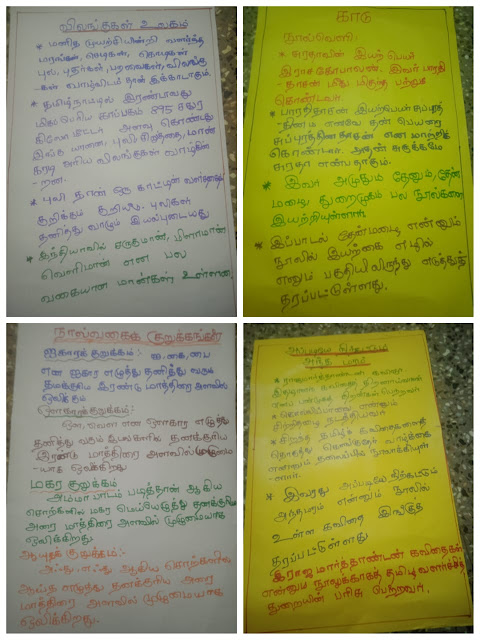 விலங்குகள் உலகம்
* மனித முயற்சியின்றி வளர்ந்த
மரங்கள், செடிகள், கொடிகள்
புல், புதர்கள், பறவைகள், விலங்கு
-கள் வாழ்விடம் தான் இக்காடாகும்.
* தமிழ்நாட்டில் இரண்டாவது
மிகப்பெரிய காப்பகம் 895 சதுர
கிலோ மீட்டர் அளவு கொண்டது
இங்கு யானை, புலி சிறுத்தை, மான்
கரடி அரிய விலங்குகள் வாழ்கின்
-றன.
* புலி தான் ஒரு காட்டின் வளத்தைக்
குறிக்கும் குறியீடு. புலிகள்
தனித்து வாழும் இயல்புடையது
* இந்தியாவில் சருகுமான், மிளாமான்
வெளிமான் என பல
வகையான மான்கள் உள்ளன.
காடு
நூல்வெளி
* சுரதாவின் இயற் பெயர்
இராசகோபாலன். இவர் பாரதி
-தாசன் மீது மிகுந்த பற்றுக்
கொண்டவர்.
* பாரதிதாசன் இயற்பெயர் சுப்புரத்
-தினம் எனவே தன் பெயரை
சுப்புரத்தினதாசன் என மாற்றிக்
கொண்டார். அதன் சுருக்கமே
சுரதா என்பதாகும்.
* இவர் அமுதும் தேனும், தேன்
மழை, துறைமுகம் பல நூல்களை
இயற்றியுள்ளார்.
* இப்பாடல் தேன்மழை என்னும்
நூலில் இயற்கை எழில்
எனும் பகுதியிலிருந்து எடுத்துத்
தரப்பட்டுள்ளது.
நால்வகைக் குறுக்கங்கள்
ஐகாரக்குறுக்கம்:-
ஐ, கை, பை
என ஐகார எழுத்து தனித்து வரும்
தமக்குரிய இரண்டு மாத்திரை அளவில்
ஒலிக்கும்
ஔகாரக்குறுக்கம்:-
ஔ, வௌ என ஔகார எழுத்து
தனித்து வரும் இடங்களில் தனக்குரிய
இரண்டு மாத்திரை அளவில் முழுமை
-யாக ஒலிக்கிறது
மகர குறுக்கம்
அம்மா பாடம் படித்தான் ஆகிய
சொற்களில் மகர மெய்யெழுத்து தனக்குரிய
அரை மாத்திரை அளவில் முழுமையாக
ஒலிக்கிறது.
ஆய்தக் குறுக்கம்:-
அஃது, எஃகு ஆகிய சொற்களில்
ஆய்த எழுத்து தனக்குரிய அரை
மாத்திரை அளவில் முழுமையாக
ஒலிக்கிறது.
அப்படியே நிற்கட்டும்
அந்த மரம்
* ராஜமார்த்தாண்டன் கவிஞர்
* கொல்லிப்பாவை என்னும்
சிற்றிதழை நடத்தியவர்
* சிறந்த தமிழ்க் கவிதைகளைத்
தொகுத்து கொங்குதேர் வாழ்க்கை
என்னும் தலைப்பில் நூலாக்கியுள்
-ளார்.
* இவரது அப்படியே நிற்கட்டும்
அந்தமரம் என்னும் நூலில்
உள்ள கவிதை இங்குத்
தரப்பட்டுள்ளது
இராஜ மார்த்தாண்டன் கவிதைகள்
என்னும் நூலுக்காகத் தமிழ் வளர்ச்சித்
துறையின் பரிசு பெற்றவர்.